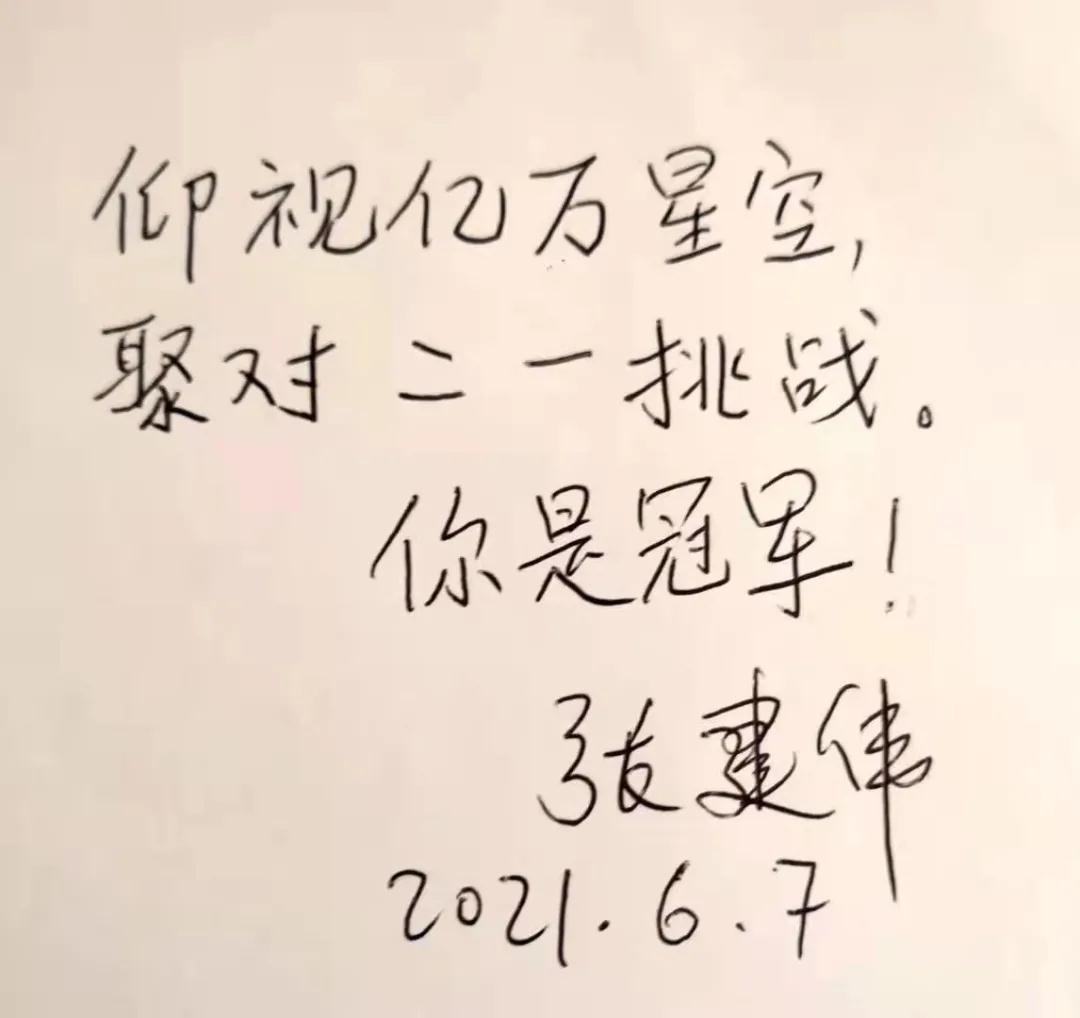 仰视亿万星空,
聚对二一挑战。
你是冠军!
张建伟
2021.6.7